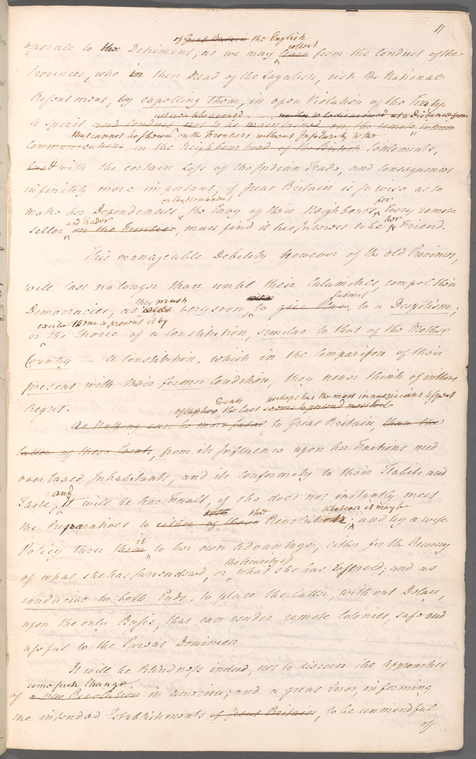 11
of Great Britain the English
operate to the Detriment; as we may collect from the Conduct of the
Provinces, who in their Dread of the Loyalists, risk the National
Resentment, by expelling them, in open Violation of the Treaty
that cannot be shown on the Frontiers without
in the Neighbourhood of the British Settlements,
with the certain Loss of the Indian Trade, and consequences
infinitely more important, if Great Britain is so wise as to
make her Dependencies, the Envy of their Neighbours; for Every remote
Settler and Trader on the Frontier, must find it his Interest to be her Friend.
This manageable Debility however of the old Provinces,
will last no longer than until their Calamities, compel their
Democracies, as they must very soon, to give Place, to submit to a Despotism;
excite them to prevent it by
or the Choice of a Constitution, similar to that of the Mother
Country — a Constitution, which in the Comparison of their
present with their former Condition, they never think of without
Regret.
Events perhaps has the most inauspicious aspect
to Great Britain, than the
of these Events, from its Influence upon her Factions and
over taxed Inhabitants, and its Conformity to their Habits and
Taste; and it will be her Fault, if she does not instantly meet
the Preparations to either of these the Revolution, whatever it may be; and by a wise
Policy turn it to her own advantage, either for the Recovery
of what she has surrendered, or the Security of what She has reserved; and as
conducive to both Ends to place the latter, without Delay,
upon the only Basis, that can render remote Colonies, safe and
useful to the Parent Dominion
It will be Blindness indeed, not to discern the Approaches
of some such Change a new Revolution in America; and a great Error, in forming
the intended Establishments of Great Britain, to be unmindful
of